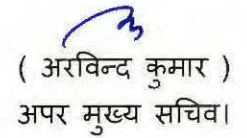 ( अरविन्द कुमार )
अपर मुख्य सचिव।